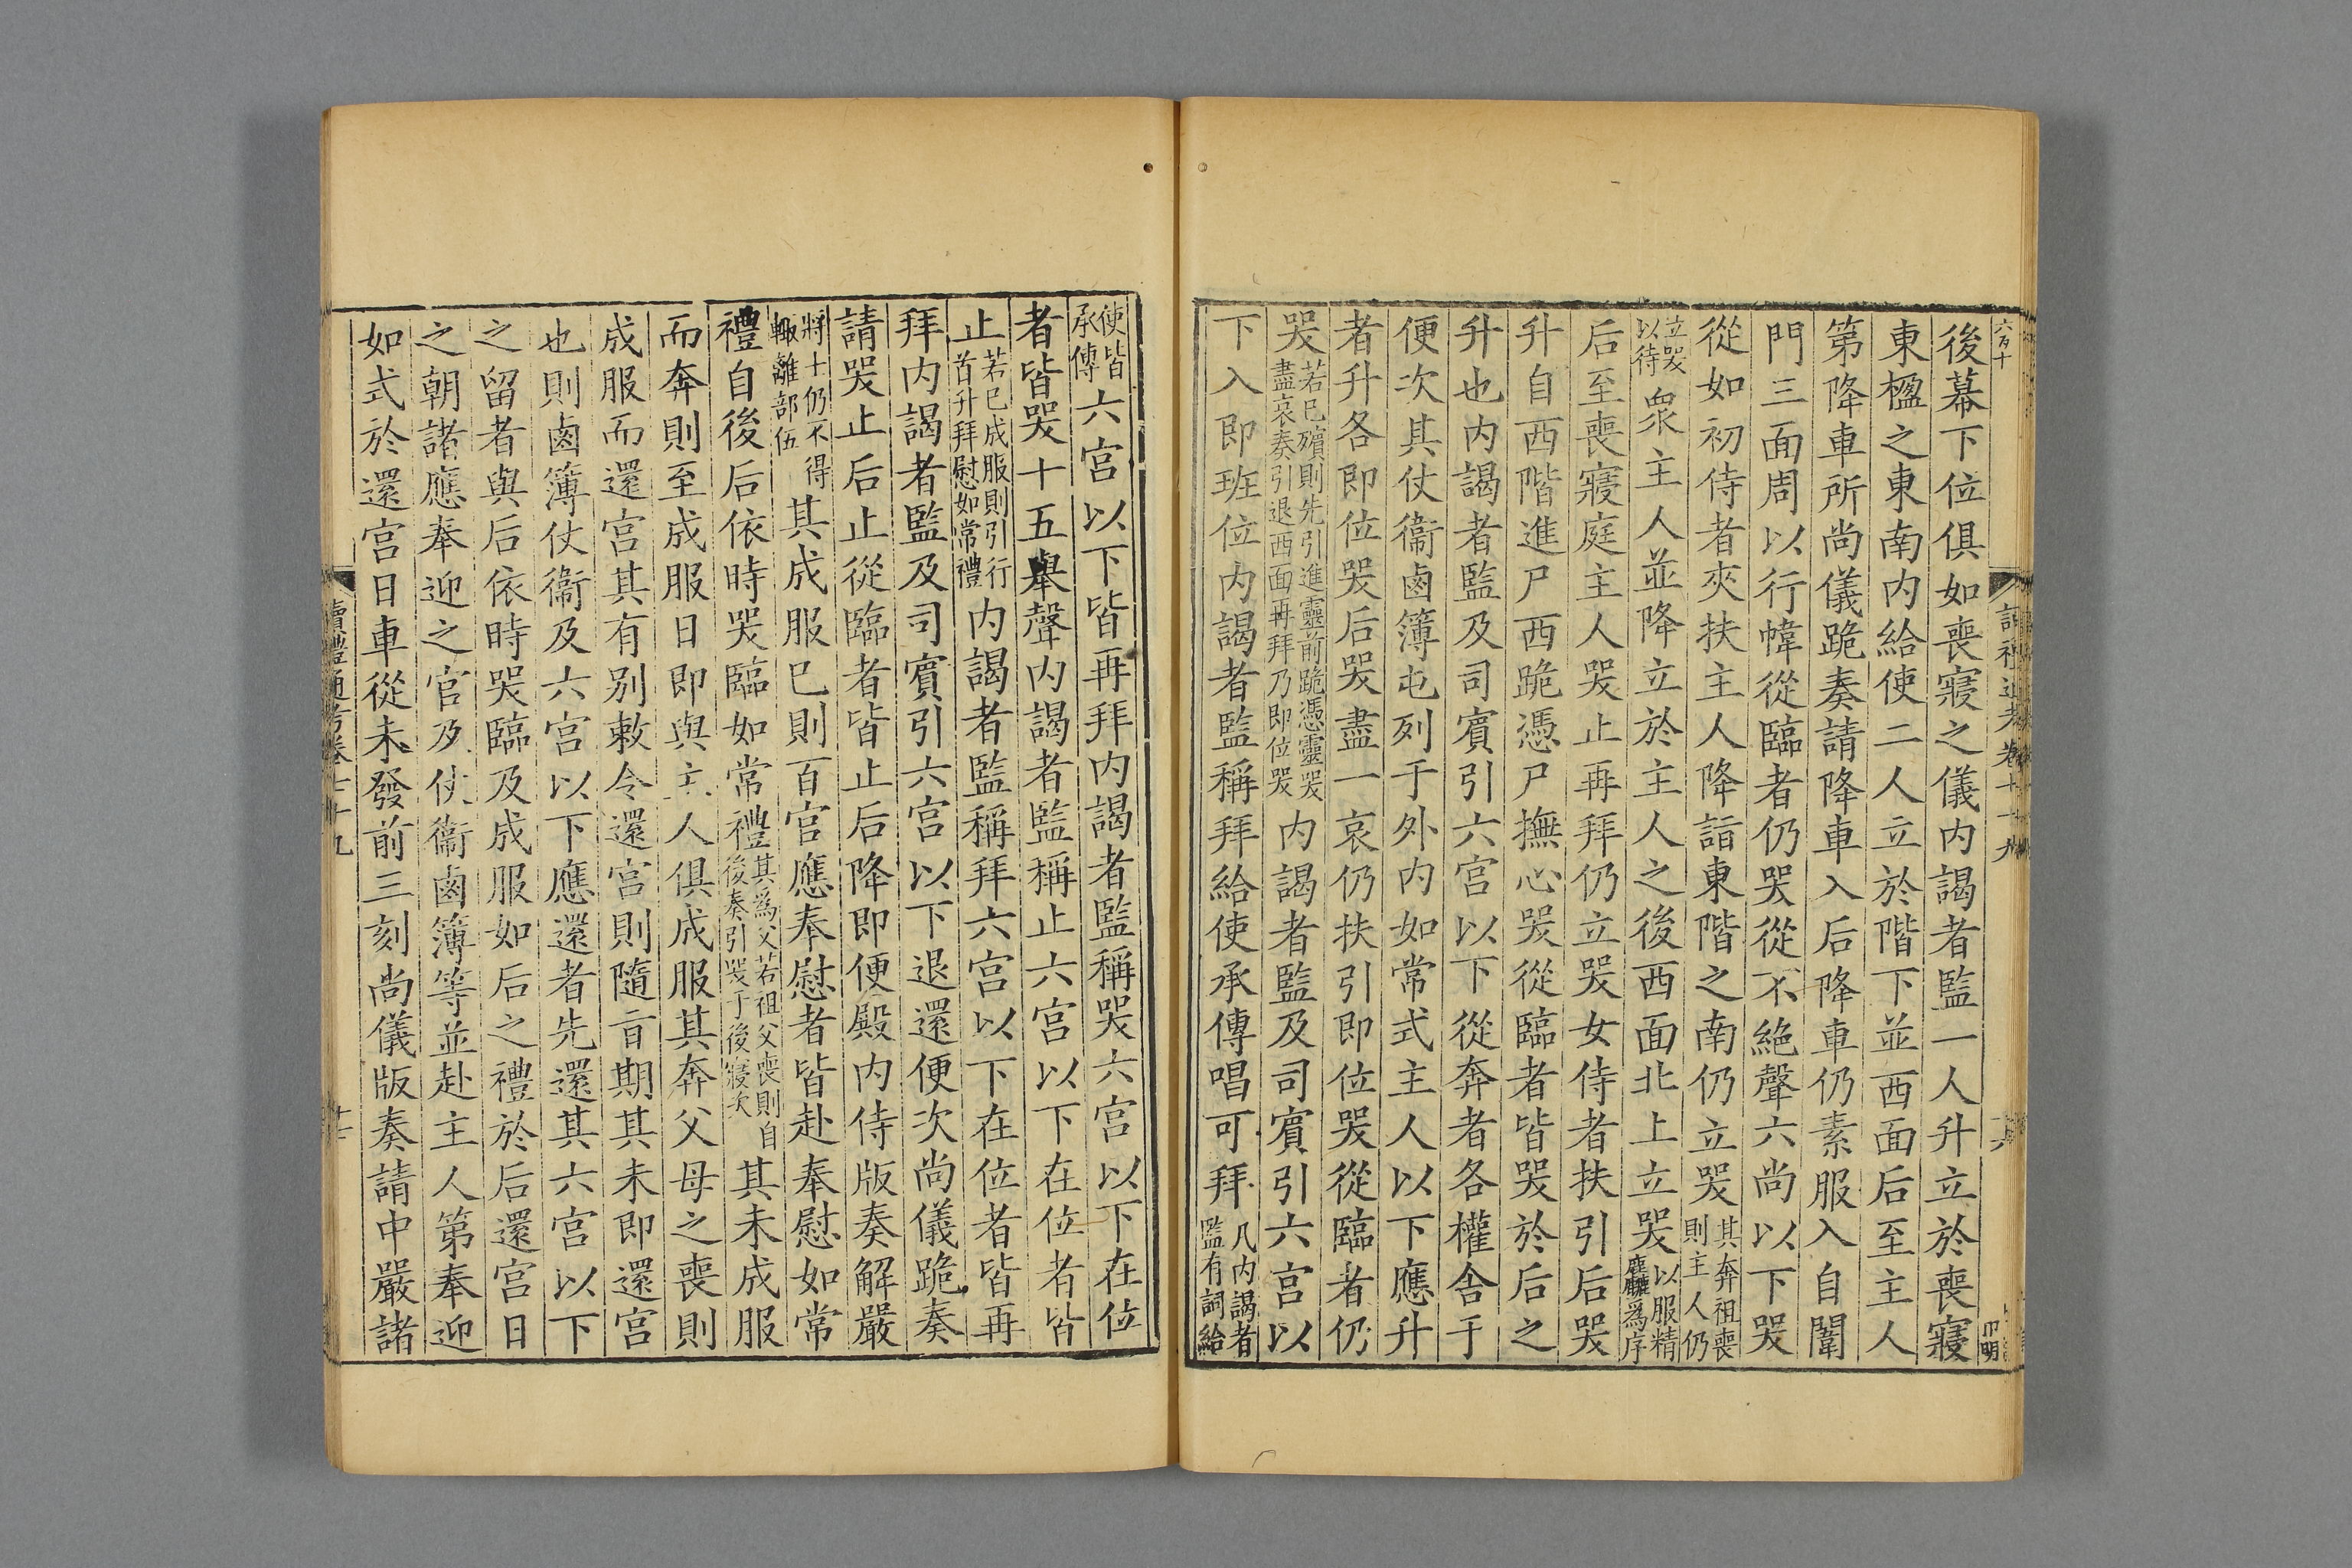 後幕下位俱如喪寢之儀内謁者監一人升立於喪寢
東楹之東南内給使二人立於階下並西面后至主人
第降車所尚儀跪奏請降車入后降車仍素服入自闈
門三面周以行幃從臨者仍哭從不絶聲六尚以下哭
從如初侍者夾扶主人降詣東階之南仍立哭其奔祖喪則主人仍
立哭以待衆主人並降立於主人之後西面北上立哭以服精麤為序
后至喪寢庭主人哭止再拜仍立哭女侍者扶引后哭
升自西階進尸西跪憑尸撫心哭從臨者皆哭於后之
升也内謁者監及司賓引六宫以下從奔者各權舎于
便次其仗衞鹵簿屯列于外内如常式主人以下應升
者升各即位哭后哭盡一哀仍扶引即位哭從臨者仍
哭若已殯則先引進靈前跪憑靈哭盡哀奏引退西面再拜乃即位哭内謁者監及司賓引六宫以
下入即班位内謁者監稱拜給使承傳唱可拜凡内謁者監有詞給
使皆承傳六宫以下皆再拜内謁者監稱哭六宫以下在位
者皆哭十五舉聲内謁者監稱止六宫以下在位者皆
止若已成服則引行首升拜慰如常禮内謁者監稱拜六宫以下在位者皆再
拜内謁者監及司賓引六宫以下退還便次尚儀跪奏
請哭止后止從臨者皆止后降即便殿内侍版奏解嚴
將士仍不得輙離部伍其成服已則百官應奉慰者皆赴奉慰如常
禮自後后依時哭臨如常禮其為父若祖父喪則自後奏引哭于後寢次其未成服
而奔則至成服日即與主人俱成服其奔父母之喪則
成服而還宫其有别敕令還宫則隨盲期其未即還宫
也則鹵簿仗衞及六宫以下應還者先還其六宫以下
之留者與后依時哭臨及成服如后之禮於后還宫日
之朝諸應奉迎之官及仗衞鹵簿等並赴主人第奉迎
如式於還宫日車從未發前三刻尚儀版奏請中嚴諸
讀禮通考卷七十九